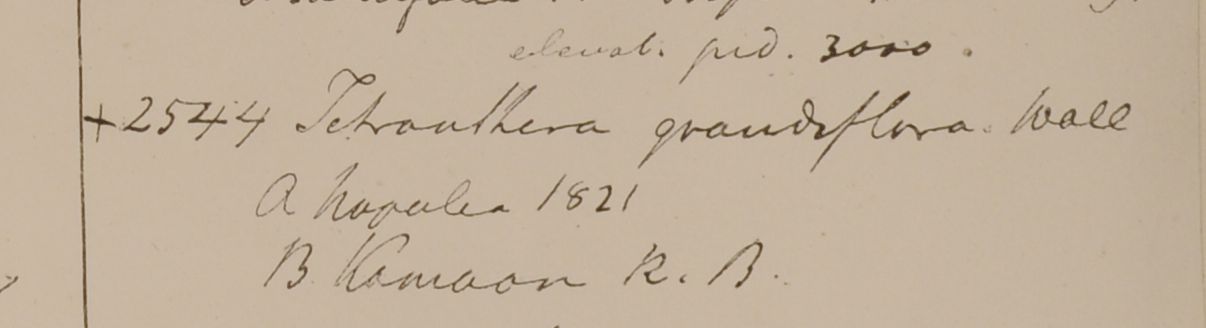 elevat. ped. 3000.
+2544 Tetranthera grandiflora. Wall
A Napalia 1821
B Kamaon R. B.